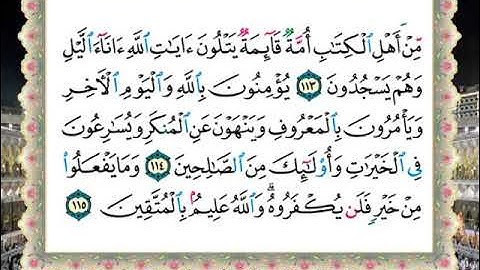 مِّنْ أَهْلِ الْكِتَابِ أُمَّةٌ قَآئِمَةٌ يَتْلُونَ ءَايَاتِ اللَّهِ ءَانَآءَ الَّيْلِ
وَهُمْ يَسْجُدُونَ ١١٣ يُؤْمِنُونَ بِاللَّهِ وَالْيَوْمِ الْأَخِرِ
وَيَأْمُرُونَ بِالْمَعْرُوفِ وَيَنْهَوْنَ عَنِ الْمُنكَرِ وَيُسَارِعُونَ
فِي الْخَيْرَاتِ وَأُوْلَٰٓئِكَ مِنَ الصَّالِحِينَ ١١٤ وَمَا يَفْعَلُواْ
مِنْ خَيْرٍ فَلَن يُكْفَرُوهُ ۗ وَاللَّهُ عَلِيمٌ بِالْمُتَّقِينَ ١١٥